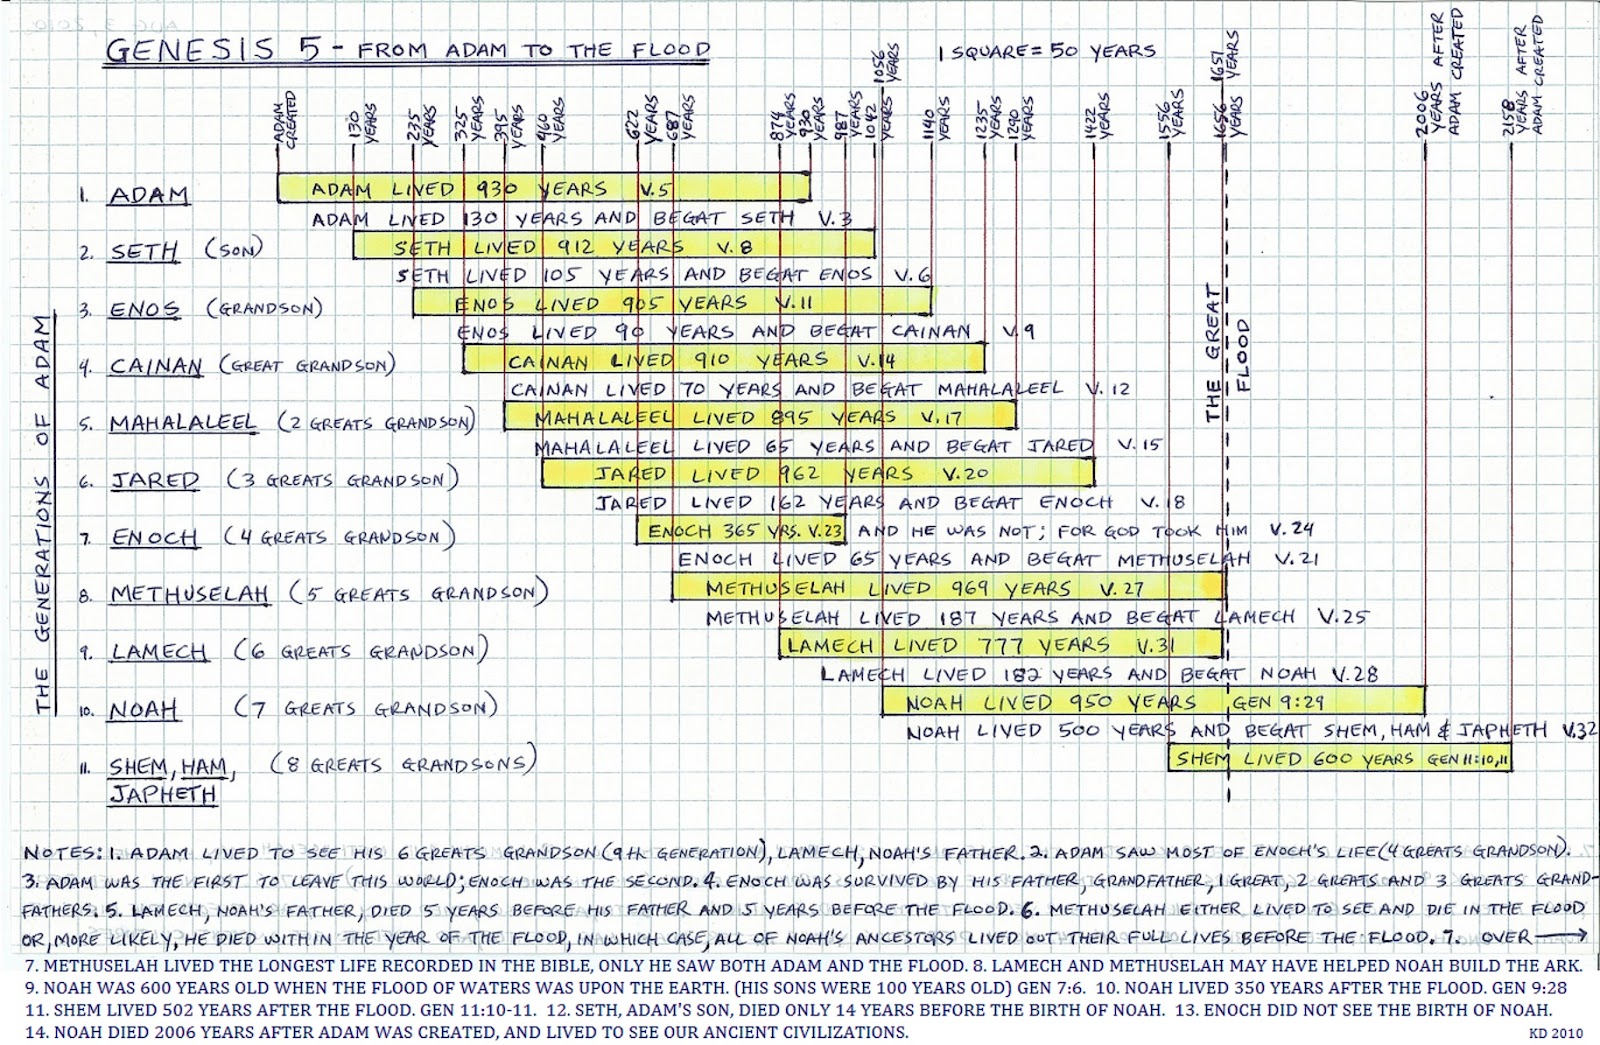 GENESIS 5 - FROM ADAM TO THE FLOOD
1 SQUARE = 50 YEARS
ADAM CREATED
130 YEARS
235 YEARS
325 YEARS
395 YEARS
460 YEARS
622 YEARS
687 YEARS
874 YEARS
930 YEARS
987 YEARS
1042 YEARS
1056 YEARS
1140 YEARS
1235 YEARS
1290 YEARS
1422 YEARS
1556 YEARS
1656 YEARS
1651 YEARS
2006 YEARS AFTER ADAM CREATED
2158 YEARS AFTER ADAM CREATED
THE GENERATIONS OF ADAM
THE GREAT FLOOD
1. ADAM
ADAM LIVED 930 YEARS V.5
ADAM LIVED 130 YEARS AND BEGAT SETH V.3
2. SETH (SON)
SETH LIVED 912 YEARS V.8
SETH LIVED 105 YEARS AND BEGAT ENOS V.6
3. ENOS (GRANDSON)
ENOS LIVED 905 YEARS V.11
ENOS LIVED 90 YEARS AND BEGAT CAINAN V.9
4. CAINAN (GREAT GRANDSON)
CAINAN LIVED 910 YEARS V.14
CAINAN LIVED 70 YEARS AND BEGAT MAHALALEEL V.12
5. MAHALALEEL (2 GREATS GRANDSON)
MAHALALEEL LIVED 895 YEARS V.17
MAHALALEEL LIVED 65 YEARS AND BEGAT JARED V.15
6. JARED (3 GREATS GRANDSON)
JARED LIVED 962 YEARS V.20
JARED LIVED 162 YEARS AND BEGAT ENOCH V.18
7. ENOCH (4 GREATS GRANDSON)
ENOCH 365 YRS. V.23 AND HE WAS NOT; FOR GOD TOOK HIM V.24
ENOCH LIVED 65 YEARS AND BEGAT METHUSELAH V.21
8. METHUSELAH (5 GREATS GRANDSON)
METHUSELAH LIVED 969 YEARS V.27
METHUSELAH LIVED 187 YEARS AND BEGAT LAMECH V.25
9. LAMECH (6 GREATS GRANDSON)
LAMECH LIVED 777 YEARS V.31
LAMECH LIVED 182 YEARS AND BEGAT NOAH V.28
10. NOAH (7 GREATS GRANDSON)
NOAH LIVED 950 YEARS GEN 9:29
NOAH LIVED 500 YEARS AND BEGAT SHEM, HAM & JAPHETH V.32
11. SHEM, HAM, (8 GREATS GRANDSONS)
JAPHETH
SHEM LIVED 600 YEARS GEN 11:10,11
NOTES: 1. ADAM LIVED TO SEE HIS 6 GREATS GRANDSON (9th GENERATION), LAMECH, NOAH'S FATHER. 2. ADAM SAW MOST OF ENOCH'S LIFE (4 GREATS GRANDSON).
3. ADAM WAS THE FIRST TO LEAVE THIS WORLD; ENOCH WAS THE SECOND. 4. ENOCH WAS SURVIVED BY HIS FATHER, GRANDFATHER, 1 GREAT, 2 GREATS AND 3 GREATS GRAND-
FATHERS. 5. LAMECH, NOAH'S FATHER, DIED 5 YEARS BEFORE HIS FATHER AND 5 YEARS BEFORE THE FLOOD. 6. METHUSELAH EITHER LIVED TO SEE AND DIE IN THE FLOOD
OR, MORE LIKELY, HE DIED WITHIN THE YEAR OF THE FLOOD, IN WHICH CASE, ALL OF NOAH'S ANCESTORS LIVED OUT THEIR FULL LIVES BEFORE THE FLOOD. 7. OVER
7. METHUSELAH LIVED THE LONGEST LIFE RECORDED IN THE BIBLE, ONLY HE SAW BOTH ADAM AND THE FLOOD. 8. LAMECH AND METHUSELAH MAY HAVE HELPED NOAH BUILD THE ARK.
9. NOAH WAS 600 YEARS OLD WHEN THE FLOOD OF WATERS WAS UPON THE EARTH. (HIS SONS WERE 100 YEARS OLD) GEN 7:6. 10. NOAH LIVED 350 YEARS AFTER THE FLOOD. GEN 9:28
11. SHEM LIVED 502 YEARS AFTER THE FLOOD. GEN 11:10-11. 12. SETH, ADAM'S SON, DIED ONLY 14 YEARS BEFORE THE BIRTH OF NOAH. 13. ENOCH DID NOT SEE THE BIRTH OF NOAH.
14. NOAH DIED 2006 YEARS AFTER ADAM WAS CREATED, AND LIVED TO SEE OUR ANCIENT CIVILIZATIONS.
KD 2010